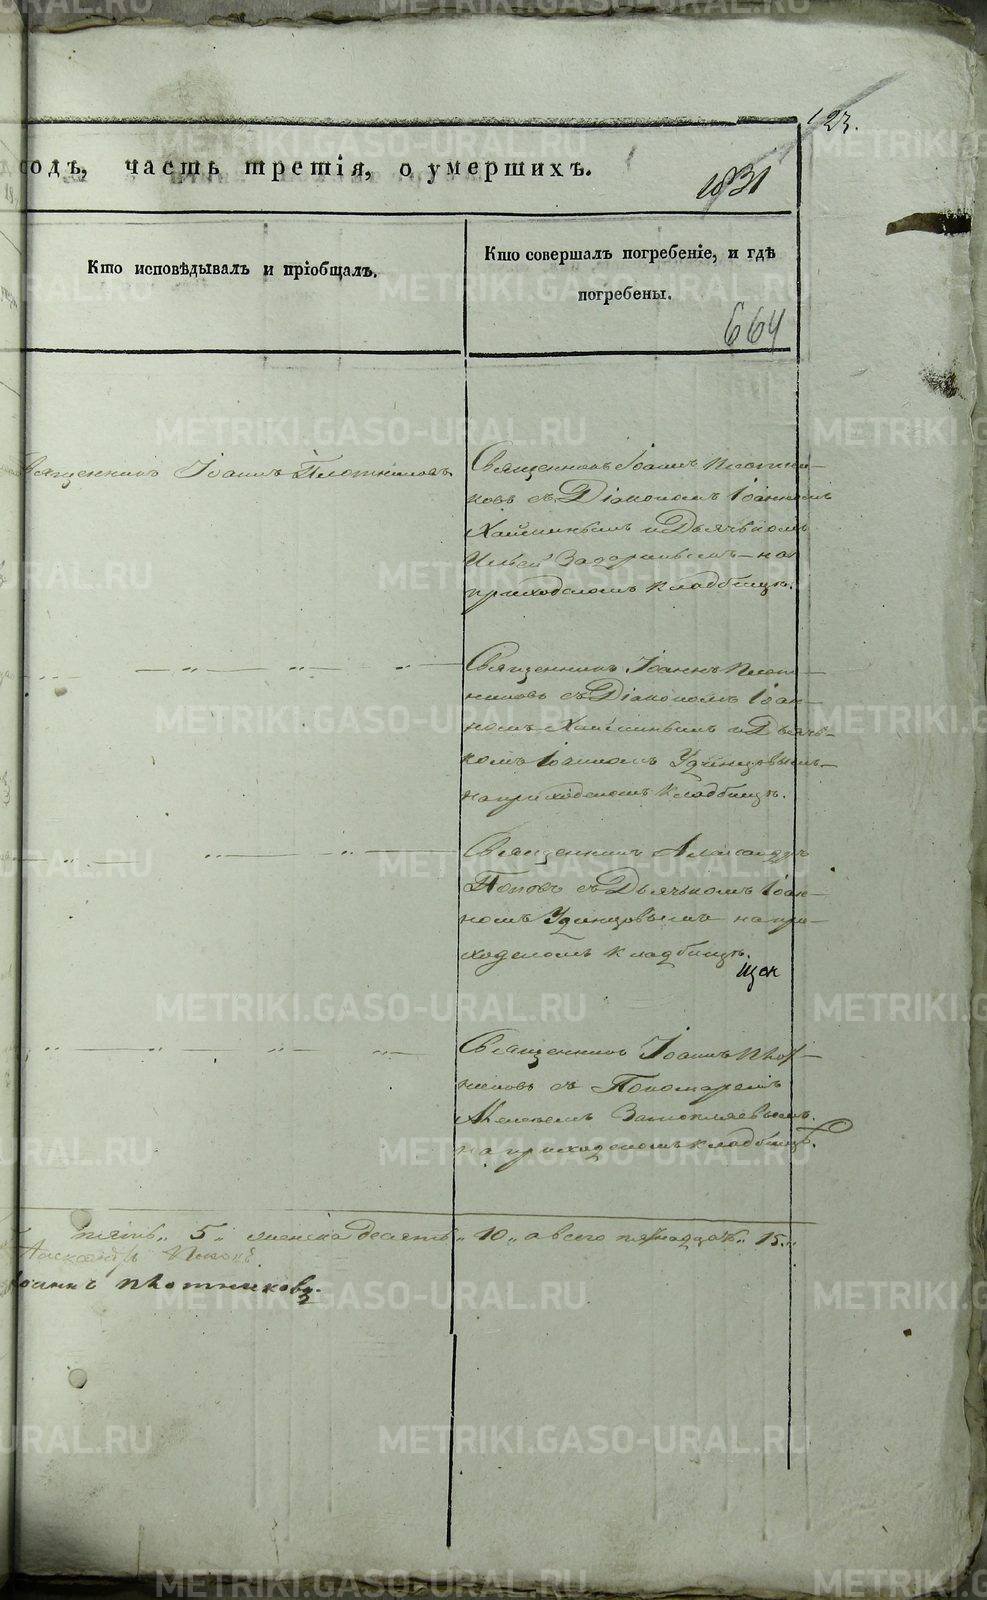 123.
одъ, часть третія, о умершихъ.
1831
Кто исповѣдывалъ и пріобщалъ.
Кто совершалъ погребеніе, и гдѣ
погребены.
664
Священникъ Іоаннъ Плотниковъ
Священникъ Іоаннъ Плотни-
ковъ съ Діакономъ Іоанномъ
и Дьячкомъ
на
приходскомъ кладбищѣ.
Священникъ Іоаннъ Плот-
никовъ съ Діакономъ Іоан-
номъ и Дьяч-
комъ Іоанномъ Удинцовымъ
на приходскомъ кладбищѣ.
Священникъ Александръ
Поповъ съ Дьячкомъ Іоан-
номъ Удинцовымъ на при-
ходскомъ кладбищѣ.
Священникъ Іоаннъ Плот-
никовъ съ Пономаремъ
на приходскомъ кладбищѣ.
пять „5„ женска десять „10„ а всего пятнадцать „15„
Александръ Поповъ
Іоаннъ Плотниковъ.
METRIKI.GASO-URAL.RU